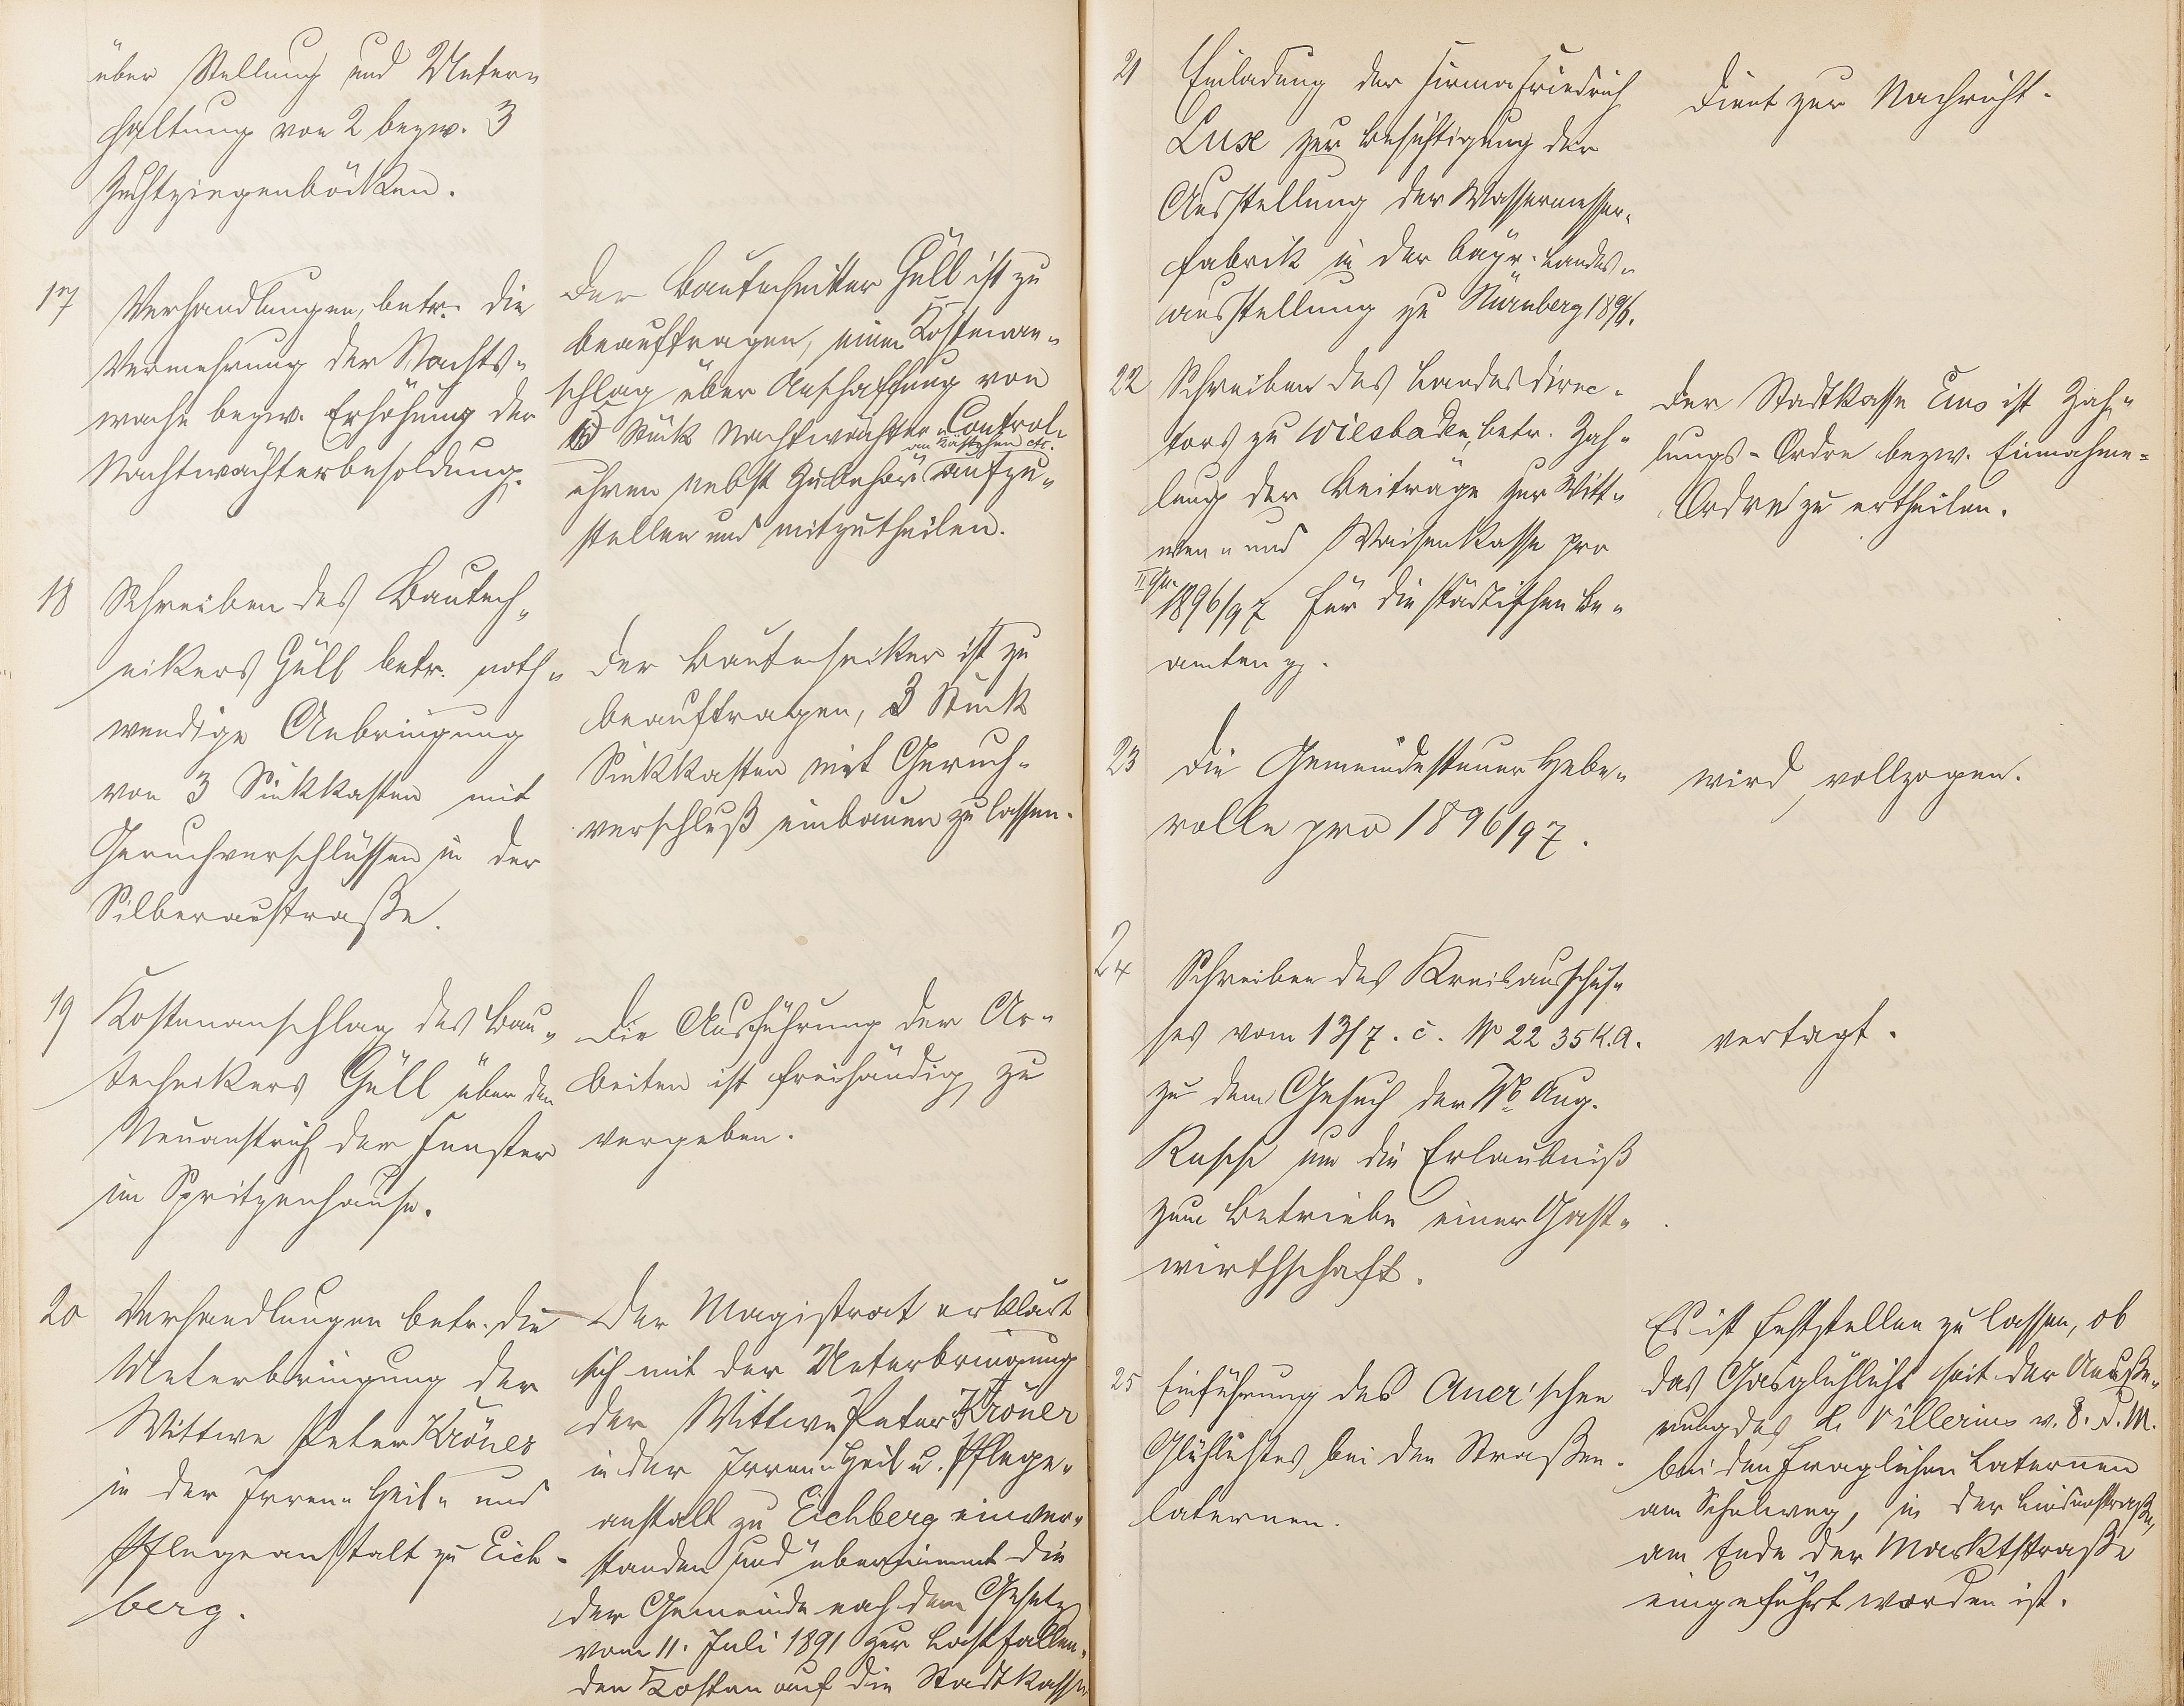 über Stellung und Unter-
haltung von 2 bezw. 3
Zuchtziegenböcken.
17
Verhandlungen, betr. die
Vermehrung der Nachts-
wache bezw. Erhöhung der
Nachtwächterbesoldung.
Der Bautechniker Güll ist zu
beauftragen, einen Kostenan-
schlag über Anschaffung von
Stück Nachtwächter-Control-
an Kästchen etc.
uhren nebst Zubehör aufzu-
stellen und mitzutheilen.
18
Schreiben des Bautech-
nikers Güll betr. noth-
wendige Anbringung
von 3 Sinkkasten mit
Geruchverschlüssen in der
Silberaustraße.
Der Bautechniker ist zu
beauftragen, 3 Stück
Sinkkasten mit Geruch-
verschluß einbauen zu lassen.
19
Kostenanschlag des Bau-
technikers Güll über den
Neuanstrich der Fenster
im Spritzenhause.
Die Ausführung der Ar-
beiten ist freihändig zu
vergeben.
20
Verhandlungen betr. die
Unterbringung der
Wittwe Peter Kröner
in der Irren- Heil- und
Pflegeanstalt zu Eich-
berg.
Der Magistrat erklärt
sich mit der Unterbringung
der Wittwe Peter Kröner
in der Irren- Heil u. Pflege-
anstalt zu Eichberg einver-
standen und übernimmt die
der Gemeinde nach dem Gesetz
vom 11. Juli 1891 zur Last fallen-
den Kosten auf die Stadtkasse
21
Einladung der Firma Friedrich
Lux zur Besichtigung der
Ausstellung der Wassermesser-
fabrik in der bayr. Landes-
ausstellung zu Nürnberg 1896.
Dient zur Nachricht.
22
Schreiben des Landesdirec-
tors zu Wiesbaden, betr. Zah-
lung der Beiträge zur Witt-
wen- und Waisenkasse pro
II Qu. 1896/97 für die städtischen Be-
amten pp.
Der Stadtkasse Ems ist Zah-
lungs-Ordre bezw. Einnahme-
Ordre zu ertheilen.
23
Die Gemeindesteuer Hebe-
rolle pro 1896/97.
wird vollzogen.
24
Schreiben des Kreisausschus-
ses vom 13/7. c. No 2235 K.A.
zu dem Gesuch der Wb Aug.
Rasch um die Erlaubniß
zum Betriebe einer Gast-
wirthschaft.
vertagt.
25
Einführung des Auer'schen
Glühlichtes bei den Straßen-
laternen.
Es ist feststellen zu lassen, ob
das Gasglühlicht seit der Aeuße-
rung des H. Villerius v. 8. d. M.
bei den fraglichen Laternen
am Schulweg, in der Lindenstraße,
am Ende der Marktstraße
eingeführt worden ist.